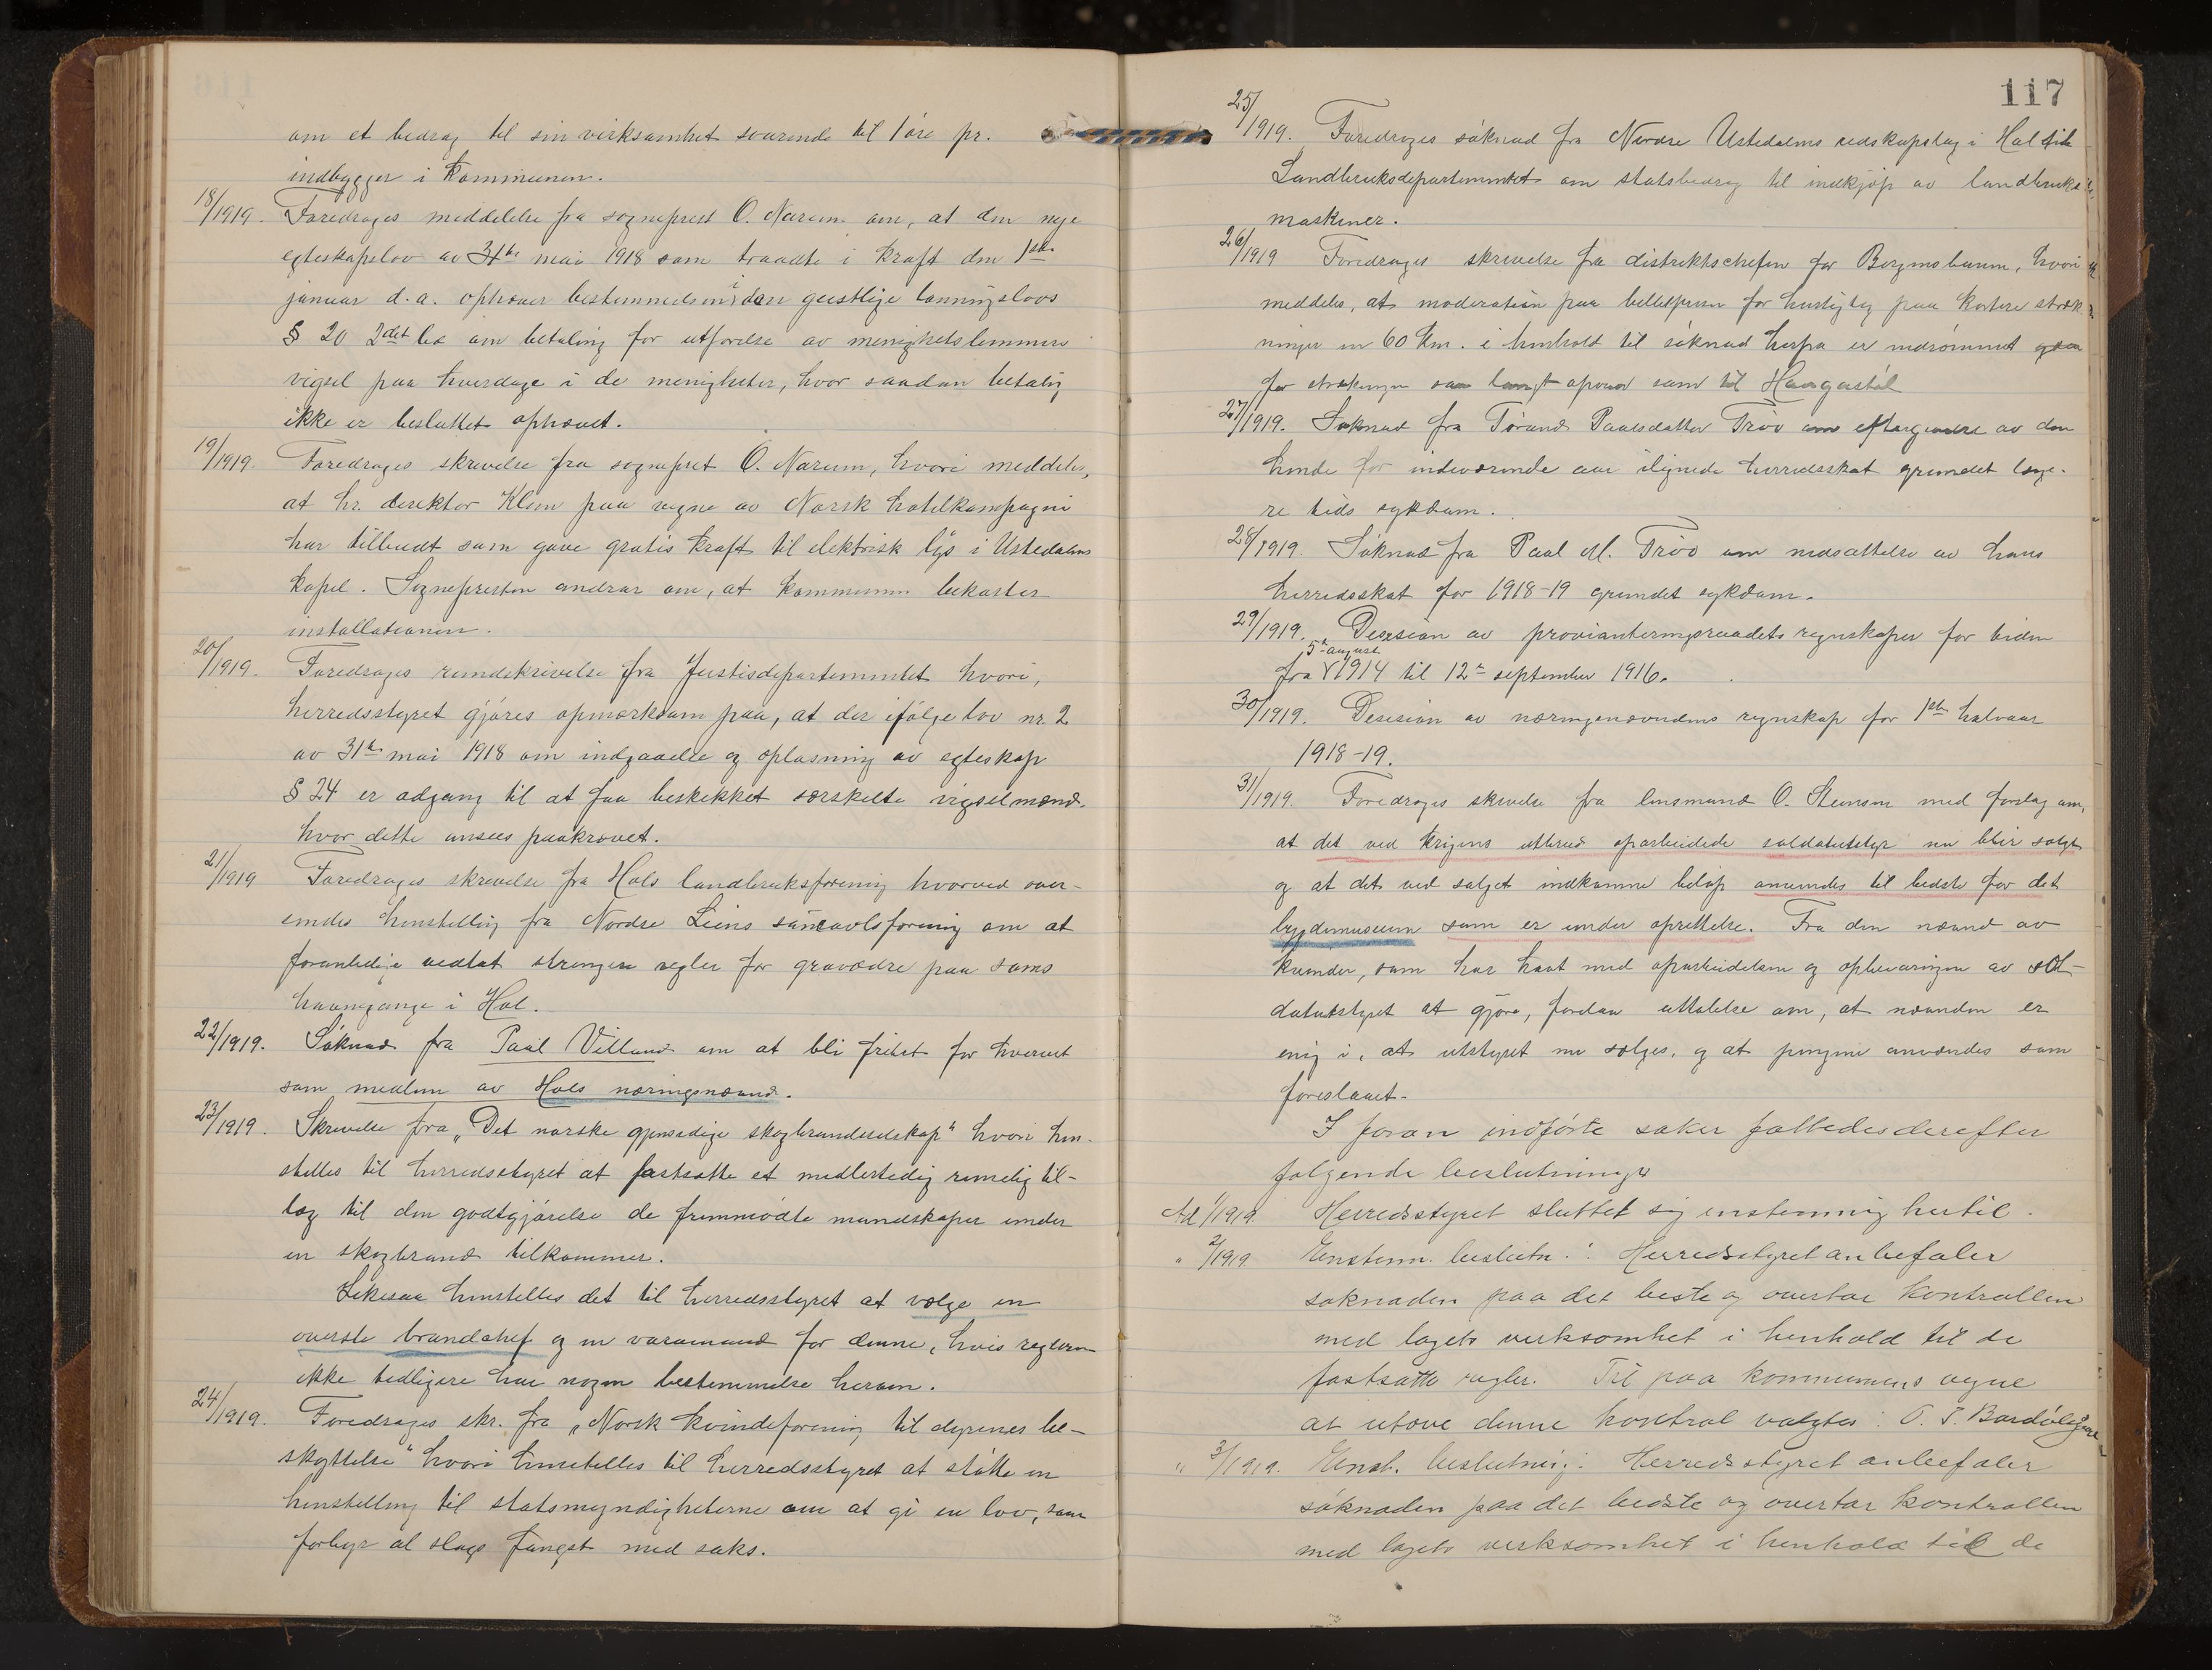 om et bedrag til sin virksomhet svarende til 1 øre pr.
indbygger i kommunen.
18/1919. Foredrages meddelelse fra sogneprest O. Narum om, at den nye
egteskapslov av 31te mai 1918 som traadte i kraft den 1ste
januar d.a. ophæver bestemmelsen i den geistlige lønningslovs
§ 20 2det led om betaling for utførelse av menighetslemmers
vigsel paa hverdage i de menigheter, hvor saadan betaling
ikke er besluttet ophævet.
19/1919. Foredrages skrivelse fra sogneprest O. Narum, hvori meddeles,
at hr. direktør Klem paa vegne av Norsk hotelkompagni
har tilbudt som gave gratis kraft til elektrisk lys i Ustedalens
kapel. Sognepresten andrar om, at kommunen bekoster
installationen.
20/1919. Foredrages rundskrivelse fra Justisdepartementet hvori,
herredsstyret gjøres opmerksom paa, at der ifølge lov nr. 2
av 31te mai 1918 om indgaaelse og opløsning av egteskap
§ 24 er adgang til at faa beskikket særskilte vigselmænd,
hvor dette ansees paakrævet.
21/1919 Foredrages skrivelse fra Hols landbruksforening hvorved over-
sendes henstilling fra Nordre Liens saueavlsforening om at
foranledige vedtat strengere regler for gravædre paa sams
havnegange i Hol.
22/1919. Søknad fra Paal Villand om at bli fritat for hvervet
som medlem av Hols næringsnævnd.
23/1919. Skrivelse fra „Det norske gjensidige skogbrandselskap" hvori hen-
stilles til herredsstyret at fastsætte et midlertidig rimelig til-
læg til den godtgjørelse de fremmødte mandskaper under
en skogbrand tilkommer.
Likesaa henstilles det til herredsstyret at vælge en
øverste brandchef og en varamand for denne, hvis reglerne
ikke tidligere har nogen bestemmelse herom.
24/1919. Foredrages skr. fra „Norsk kvindeforening til dyrenes be-
skyttelse" hvori henstilles til herredsstyret at støtte en
henstilling til statsmyndigheterne om at gi en lov, som
forbyr al slags fangst med saks.
117
25/1919. Foredrages søknad fra Nordre Ustedalens redskapslag i Hol til
Landbruksdepartementet om statsbedrag til indkjøp av landbruks
maskiner.
26/1919 Foredrages skrivelse fra distriktschefen for Bergensbanen, hvori
meddeles, at moderation paa billetprisen for hurtigtog paa kortere stræk
ninger en 60 km. i henhold til søknad herfra er indrømmet
for strækninger saa langt opover som til Haugastøl
27/1919. Søknad fra Tørand Paalsdatter Trøo om eftergivelse av den
hende for indeværende aar ilignede herredsskat grundet læge-
re tids sykdom.
28/1919. Søknad fra Paal M. Trøo om nedsættelse av hans
herredsskat for 1918-19 grundet sykdom.
29/1919. Desision av provianteringsraadets regnskaper for tiden
5te august
fra 1914 til 12te september 1916.
30/1919. Desision av næringsnævndens regnskap for 1ste halvaar
1918-19.
31/1919. Foredrages skrivelse fra lensmand O. Stensen med forslag om,
at det ved krigens utbrud oparbeidede soldatutstyr nu blir solgt
og at det ved salget indkomne beløp anvendes til bedste for det
bygdemuseum som er under oprettelse. Fra den nævnd av
kvinder, som har havt med oparbeidelsen og opbevaringen av sol-
datutstyret at gjøre, forelaa uttalelse om, at nævnden er
enig i, at utstyret nu sælges, og at pengene anvendes som
foreslaaet.
I foran indførte saker fattedes derefter
følgende beslutninger
Ad 1/1919. Herredsstyret sluttet sig enstemmig hertil.
" 2/1919 Enstem. beslutn.: Herredsstyret anbefaler
søknaden paa det beste og overtar kontrollen
med lagets virksomhet i henhold til de
fastsatte regler. Til paa kommunens vegne
at utøve denne kontrol valgtes: O. T. Bardølsgard
" 3/1919. Enst. beslutning: Herredsstyret anbefaler
søknaden paa det bedste og overtar kontrollen
med lagets virksomhet i henhold til de